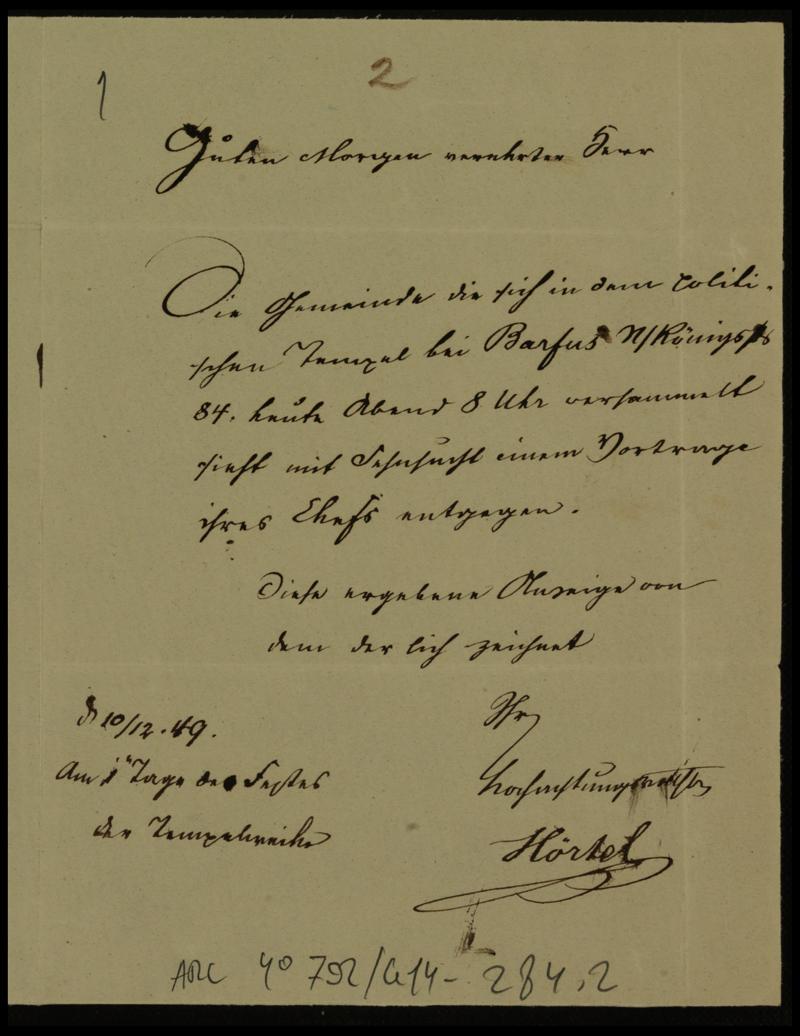 1
2
Guten Morgen verehrter Herr
Die Gemeinde die sich in dem politi-
schen Tempel bei Barfus N/Königsst
84. heute Abend 8 Uhr versammelt
sieht mit Sehnsucht einem Vortrage
ihres Chefs entgegen.
Diese ergebene Anzeige von
dem der sich zeichnet
d 10/12. 49.
Am 1 Tage des Festes
der Tempelweihe
Ihr
hochachtungsvollster
Hörtel
ARC 4° 792/G14-284.2